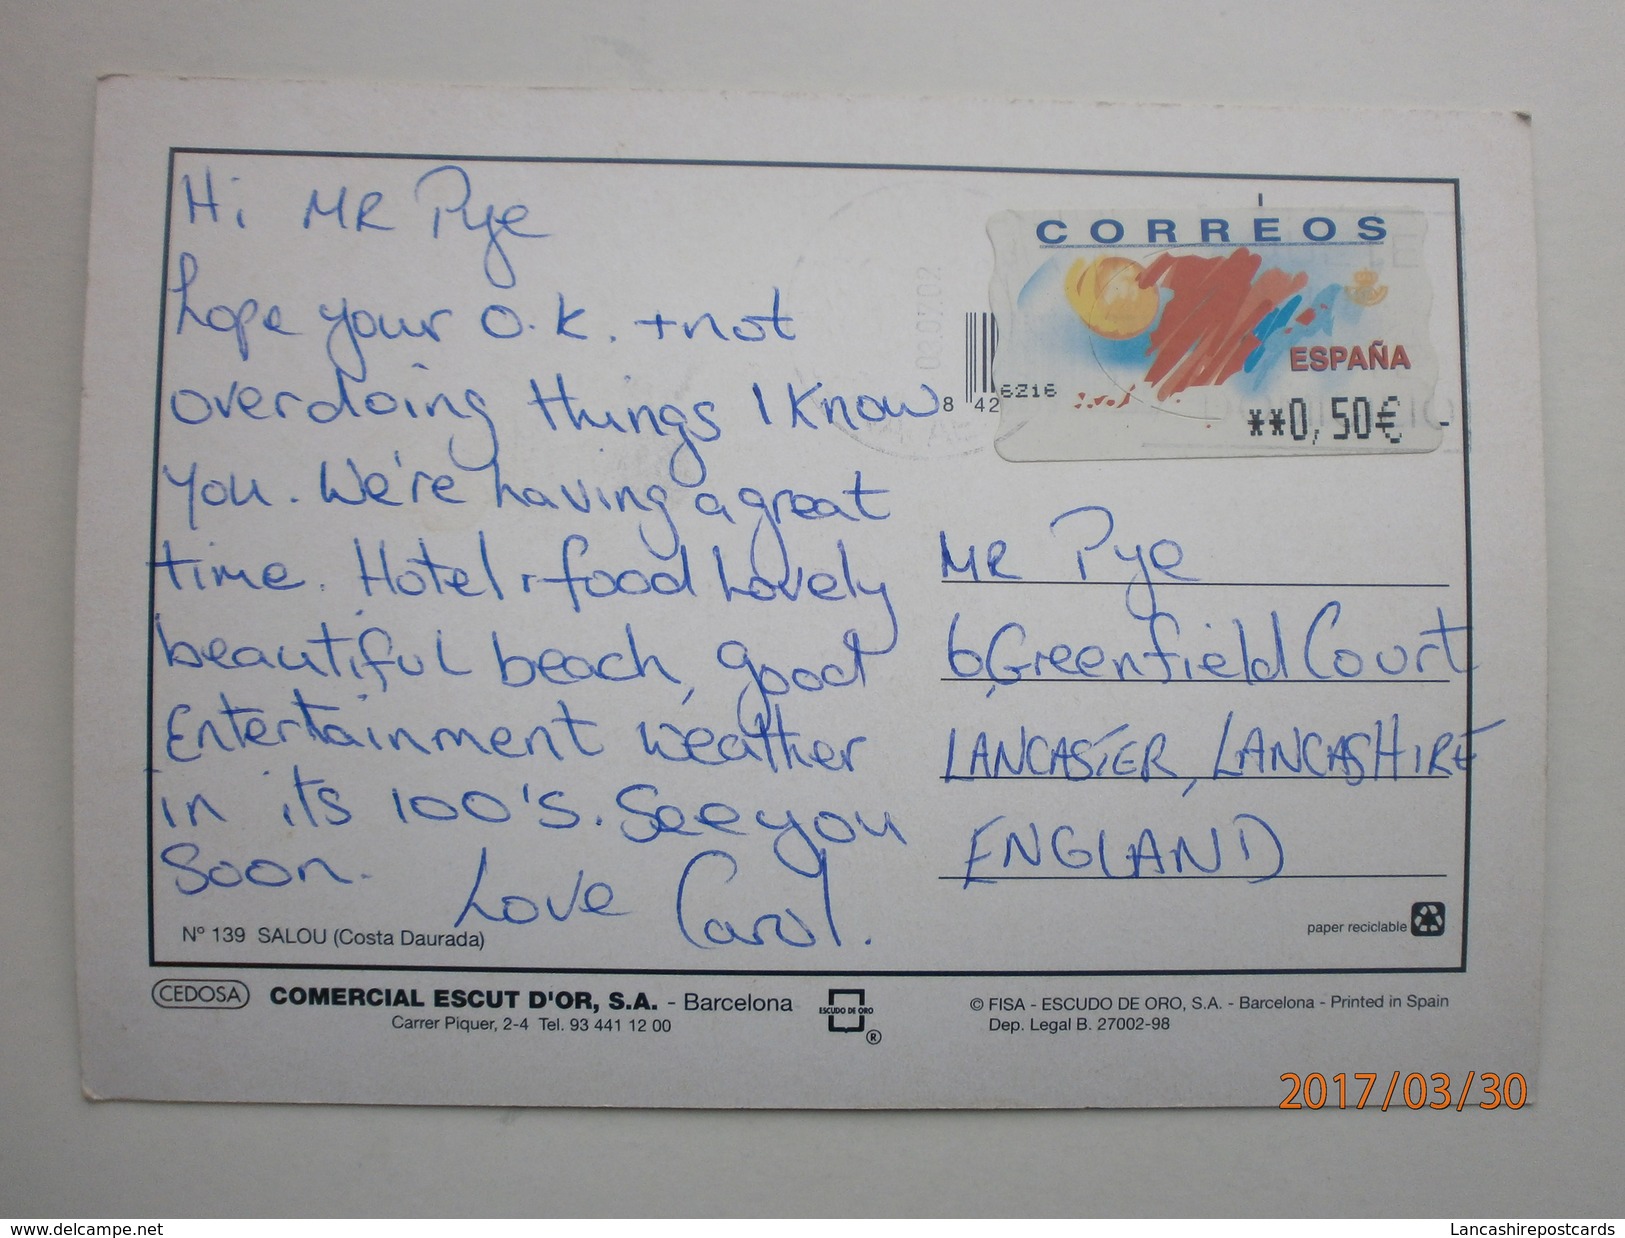 Hi MR Pye
hope your O.K. + not
overdoing things I Know
you. We're having a great
time. Hotel + food Lovely
beautiful beach, good
Entertainment Weather
in its 100's. See you
Soon.
Love Carol.
Nº 139 SALOU (Costa Daurada)
CORREOS
ESPAÑA
**0,50€
8 42
6216
02.07.02
MR Pye
6, Greenfield Court
LANCASTER, LANCASHIRE
ENGLAND
paper reciclable
CEDOSA COMERCIAL ESCUT D'OR, S.A. - Barcelona
Carrer Piquer, 2-4 Tel. 93 441 12 00
ESCUDO DE ORO
®
© FISA - ESCUDO DE ORO, S.A. - Barcelona - Printed in Spain
Dep. Legal B. 27002-98
2017/03/30
www.delcampe.net
Lancashirepostcards